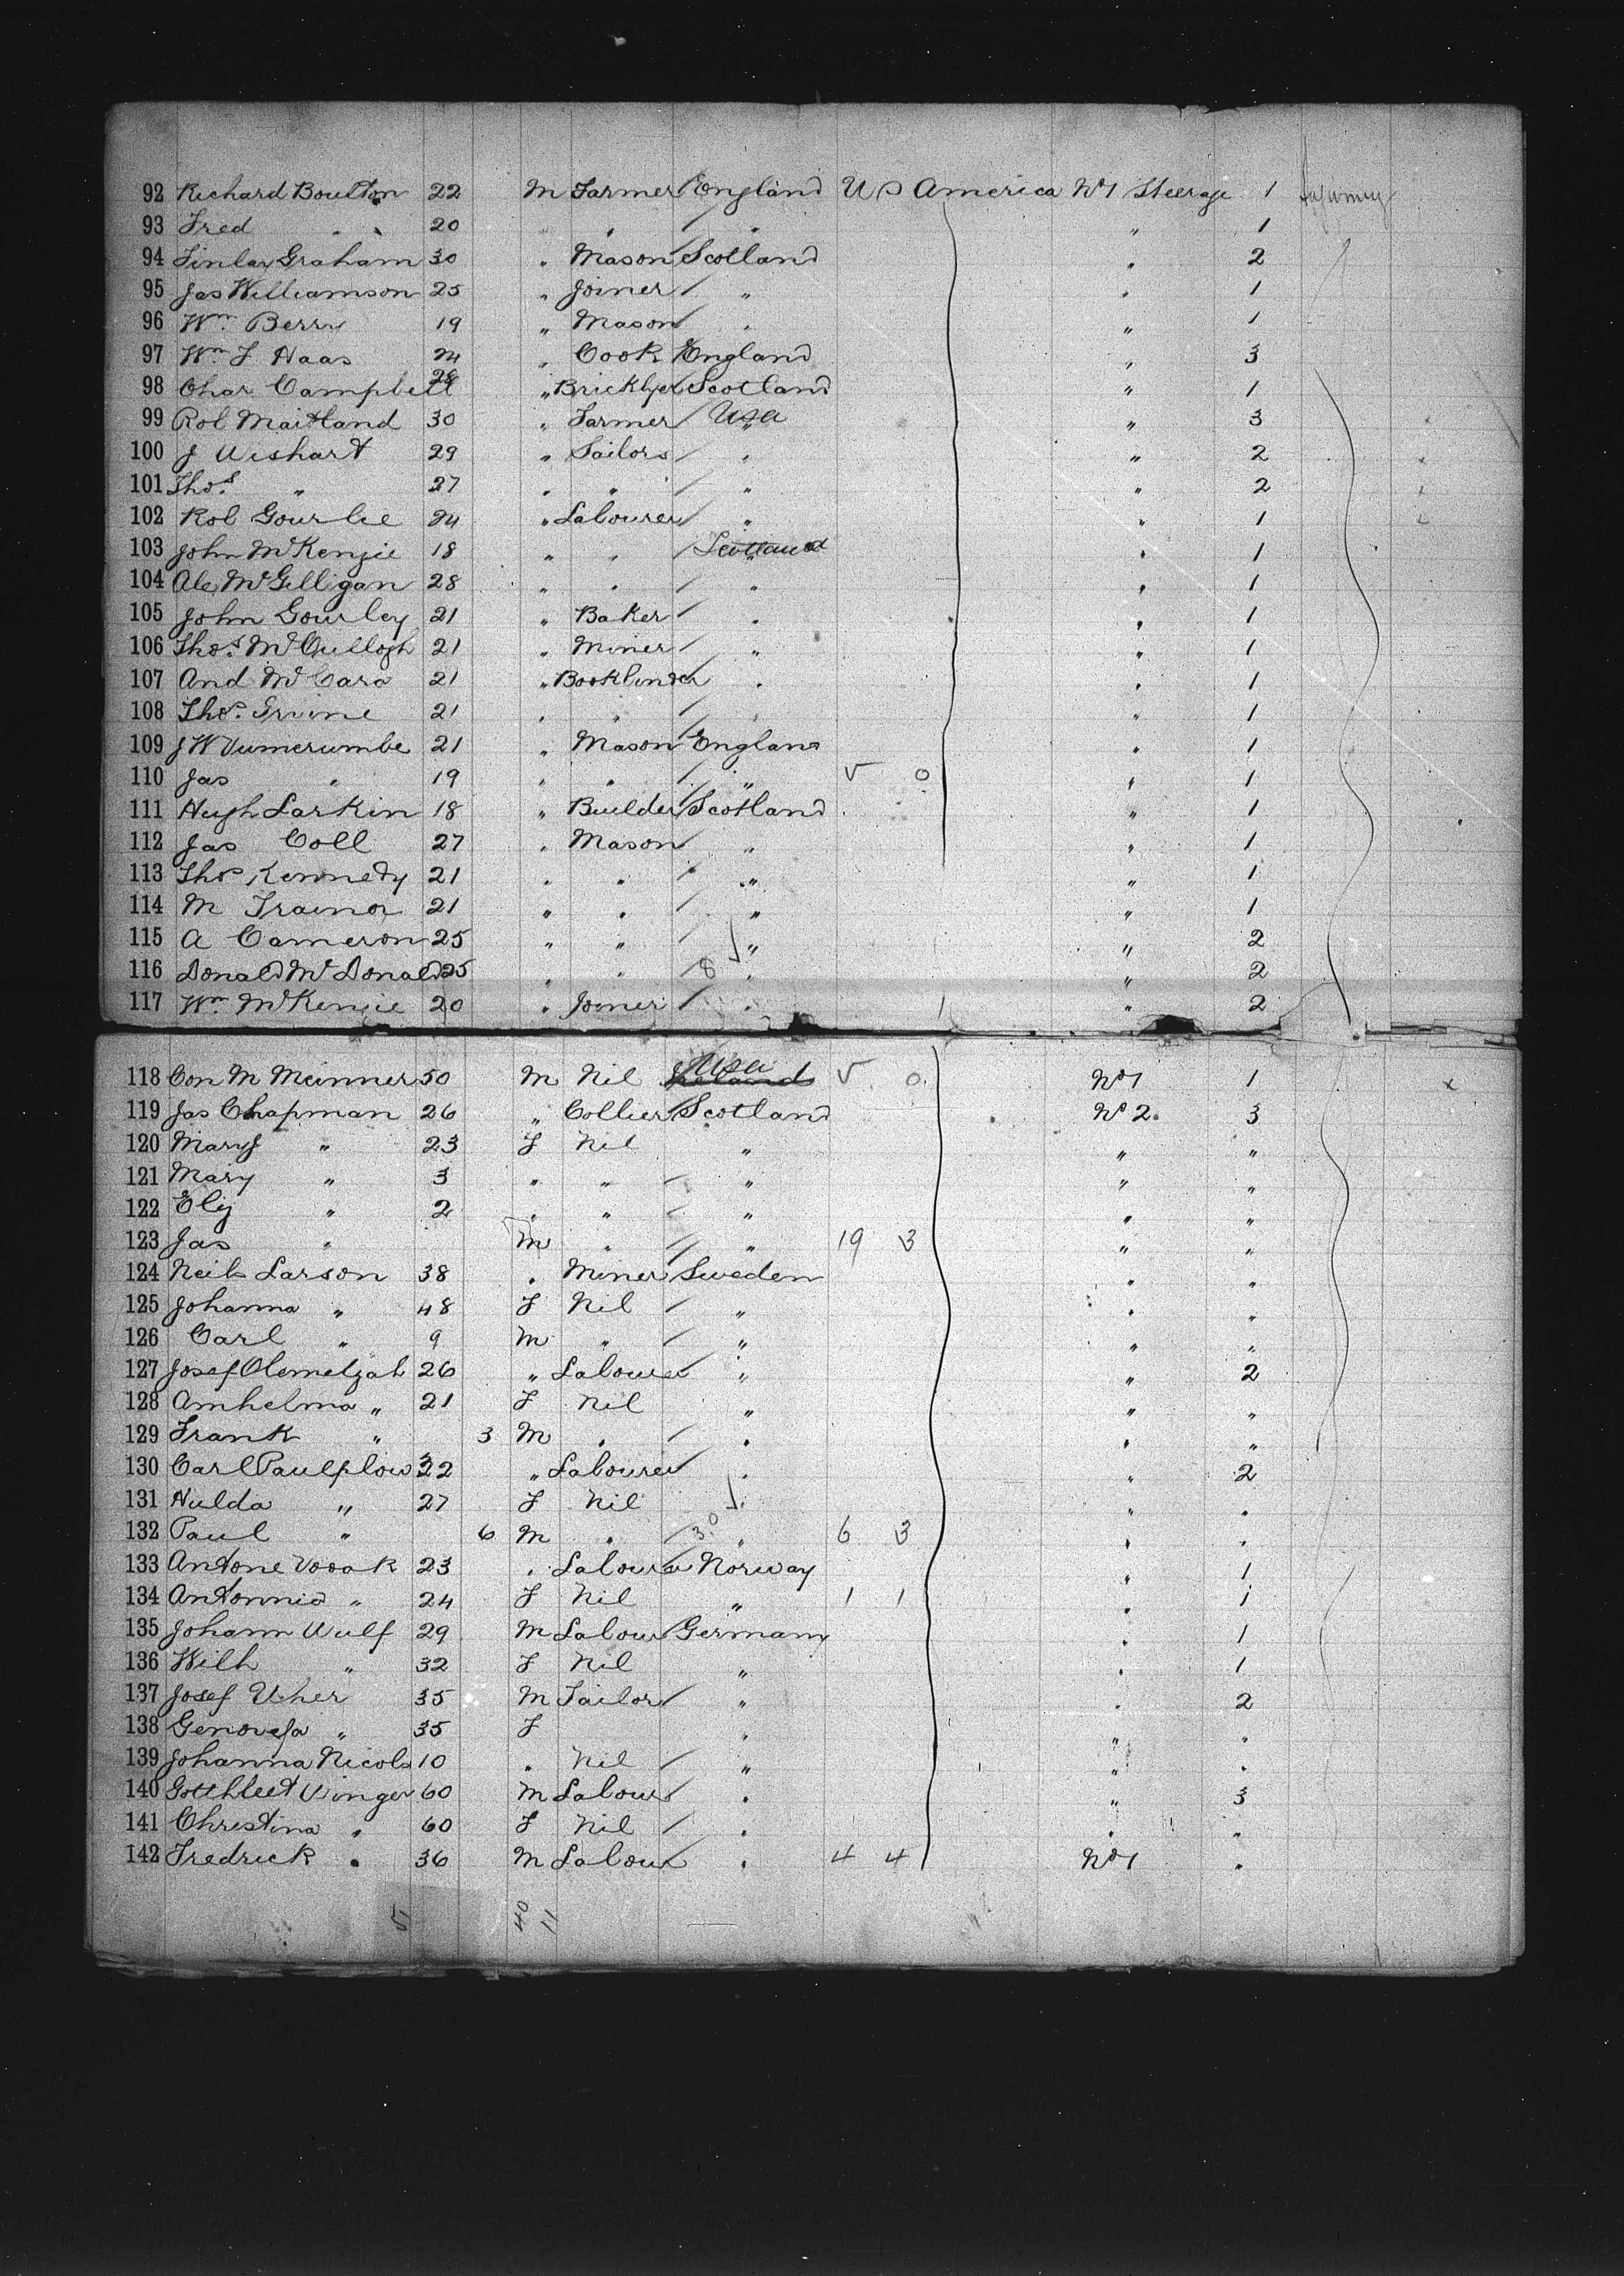 92 Richard Boulton 22 M Farmer England U S America No 1 Steerage 1
93 Fred " " 20 " " " " 1
94 Finlay Graham 30 " Mason Scotland " 2
95 Jas Williamson 25 " Joiner " " 1
96 Wm Berry 19 " Mason " " 1
97 Wm F Haas 24 " Cook England " 3
98 Char Campbell 28 " Bricklyer Scotland " 1
99 Rob Maitland 30 " Farmer Usa " 3
100 J Wishart 29 " Sailors " " 2
101 Thos " 27 " " " " 2
102 Rob Gourlie 24 " Labourer " " 1
103 John McKenzie 18 " " Scotland " 1
104 Alex McGilligan 28 " " " " 1
105 John Gourley 21 " Baker " " 1
106 Thos McCullogh 21 " Miner " " 1
107 And McCara 21 " Bookbinder " " 1
108 Thos 21 " " " " 1
109 J W 21 " Mason England " 1
110 Jas " 19 " " " V 0 " 1
111 Hugh Larkin 18 " Builder Scotland " 1
112 Jas Coll 27 " Mason " " 1
113 Thos Kennedy 21 " " " " 1
114 M Trainor 21 " " " " 1
115 A Cameron 25 " " " " 2
116 Donald McDonald 25 " " 8 " " 2
117 Wm McKenzie 20 " Joiner " " 2
118 Con M 50 M Nil Ireland Usa V 0 No 1 1
119 Jas Chapman 26 " Collier Scotland No 2 3
120 Mary J " 23 F Nil " " "
121 Mary " 3 " " " " "
122 Eliz " 2 " " " " "
123 Jas " M " " 19 3 " "
124 Neils Larson 38 " Miner Sweden " "
125 Johanna " 48 F Nil " " "
126 Carl " 9 M " " " "
127 Josef 26 " Labourer " " 2
128 Amhelma " 21 F Nil " " "
129 Frank " 3 M " " " "
130 Carl 32 " Labourer " " 2
131 Hulda " 27 F Nil " " "
132 Paul " 6 M " 30 " 6 3 " "
133 Antone Vooak 23 " Labourer Norway " 1
134 Antonnia " 24 F Nil " 1 1 " 1
135 Johann Wulf 29 M Labour Germany " 1
136 Wilh " 32 F Nil " " 1
137 Josef Uher 35 M Tailor " " 2
138 Genovefa " 35 F " " "
139 Johanna Nicols 10 " Nil " " "
140 Gotthleet Winger 60 M Labour " " 3
141 Christina " 60 F Nil " " "
142 Fredrick " 36 M Labour " 4 4 No 1 "
5 40 11